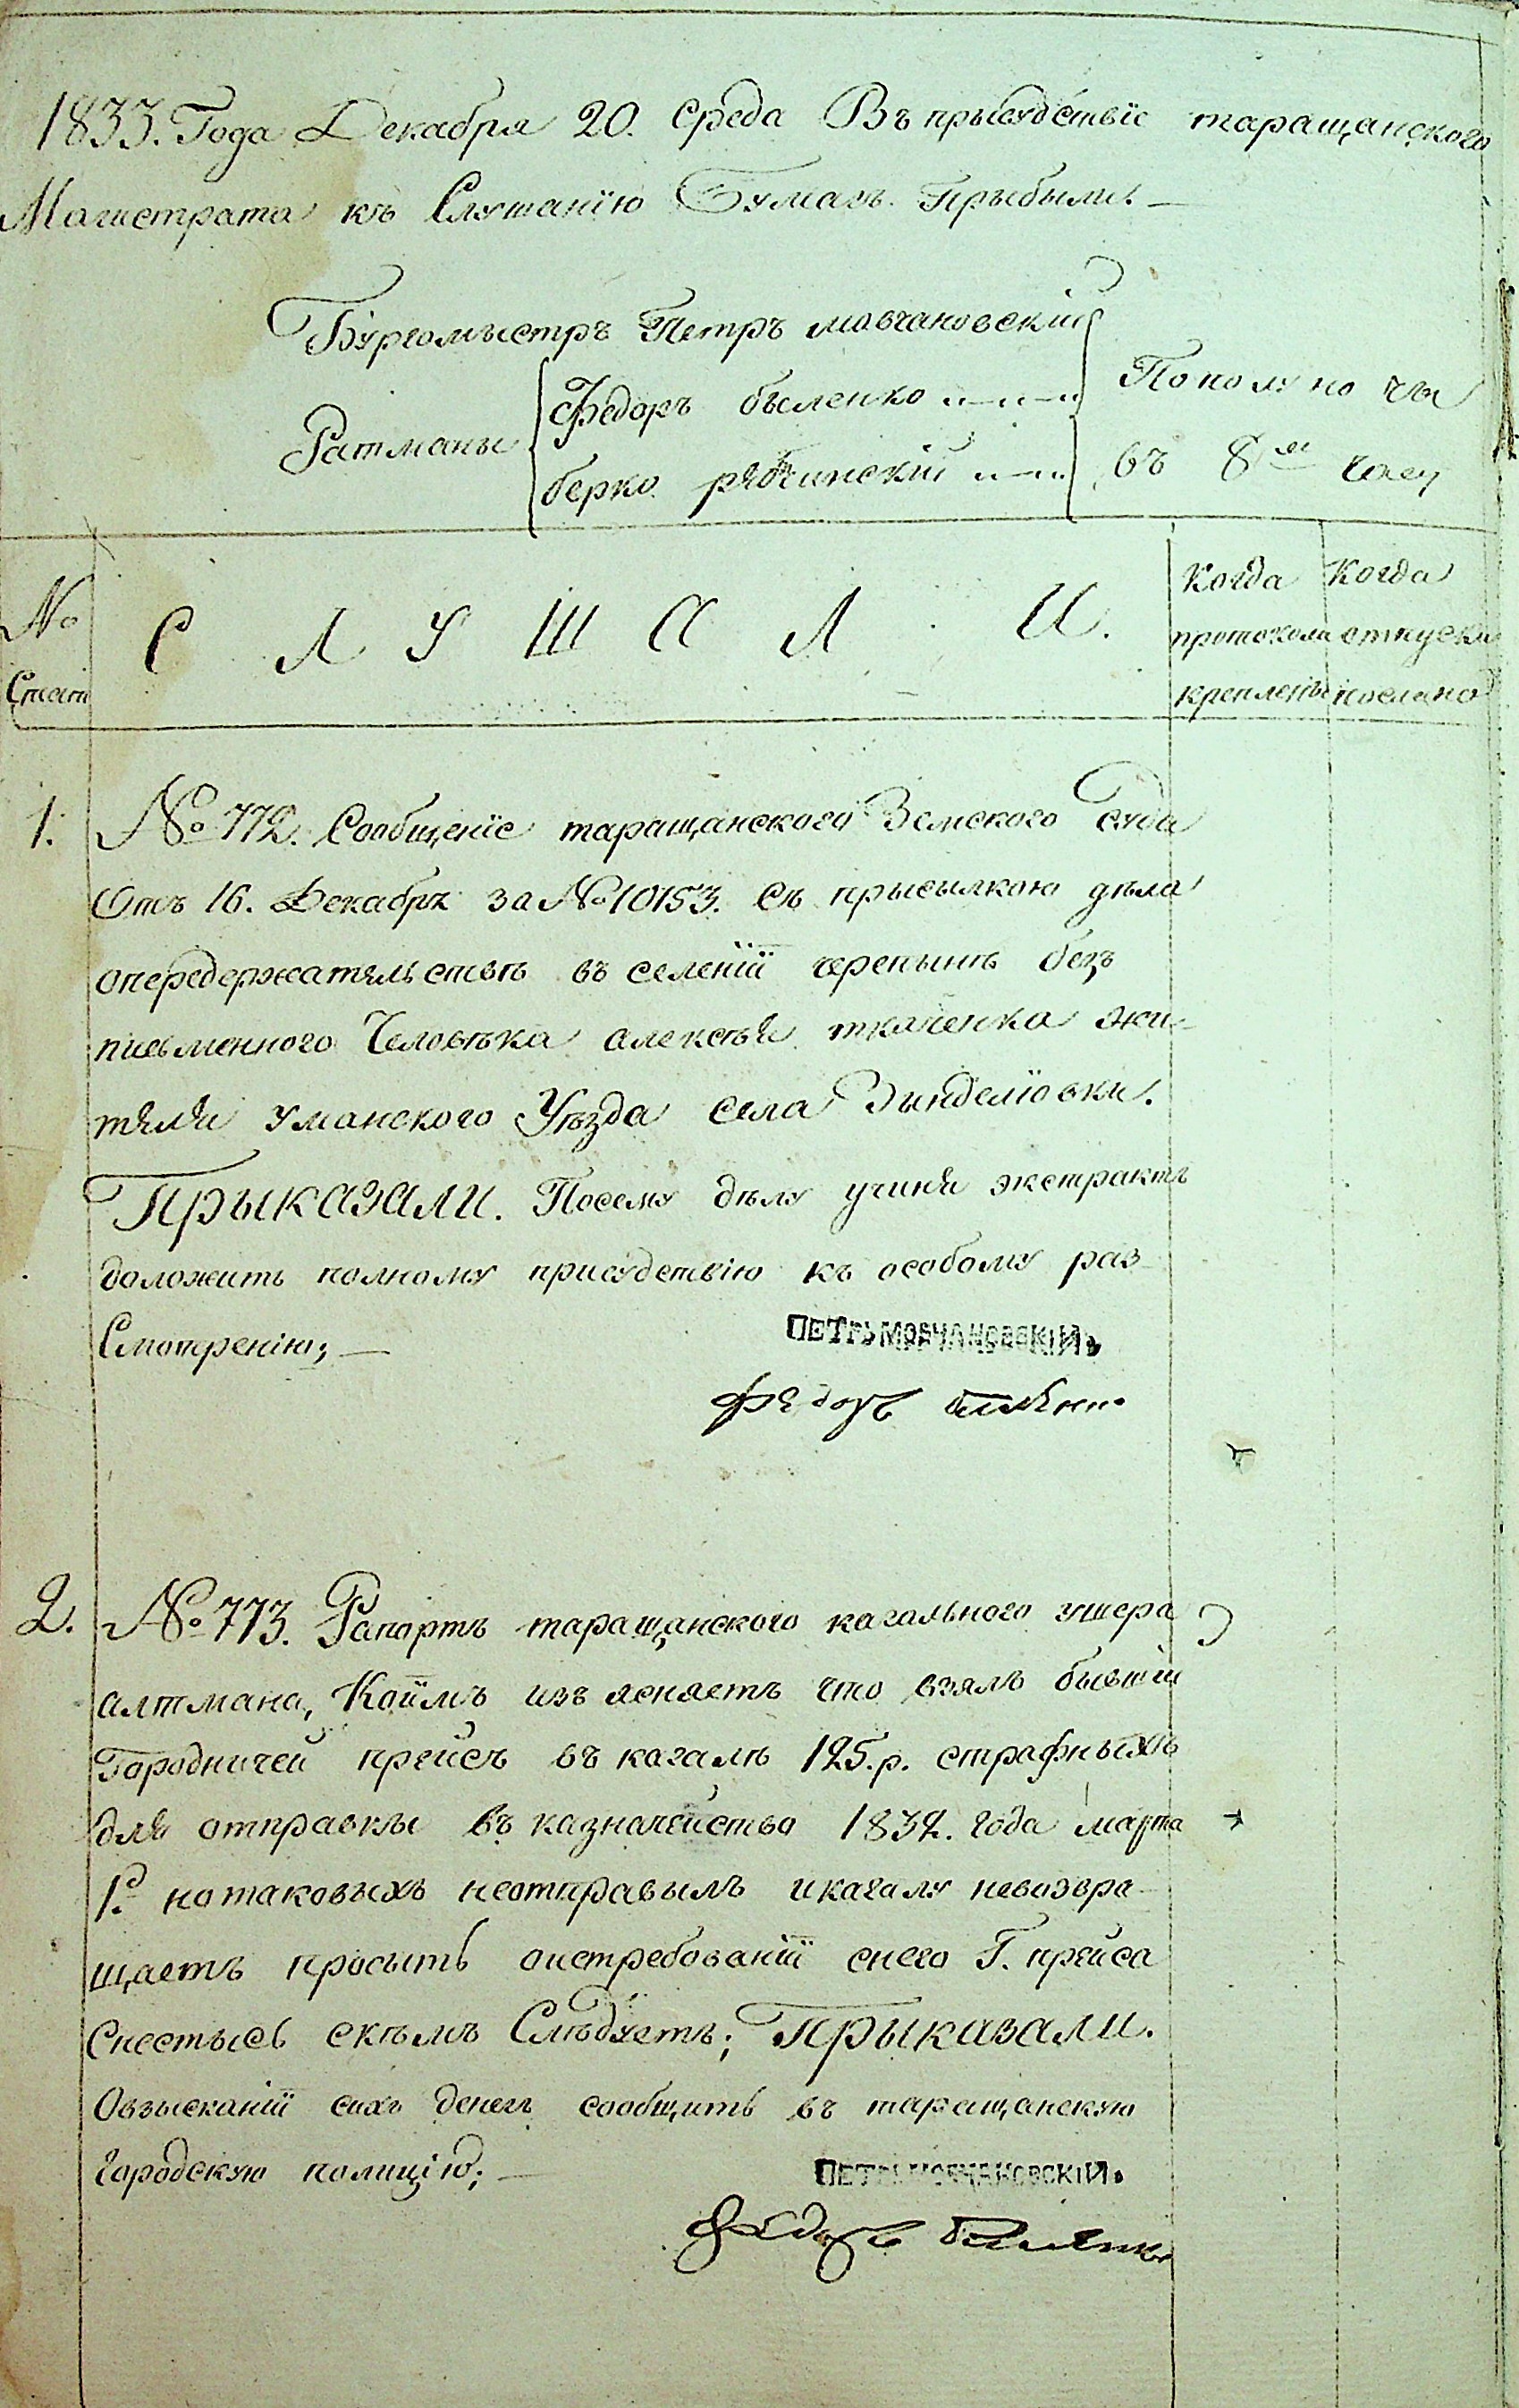 1833. Года Декабря 20. Среда Въ прысудствіе таращанского
Магистрата къ Слушанію Бумагъ Прыбыли. —
Бургомыстръ Петръ мовчановскій
Ратманы Федоръ быленко
берко рябчинскій
Пополу но чы
въ 8м часу
№ Стат
С Л У Ш А Л И.
Когда протокола креплены
Когда отпуски послано
1. № 772. Сообщеніе таращанского Земского Суда
Отъ 16. Декабря за № 10153. Съ прысылкою дѣла
опередержательствѣ въ селеніи черепынѣ безъ
письменного Человѣка алексѣя ткаченка жи-
теля уманского Уѣзда села Зынделіовки.
ПРЫКАЗАЛИ. Посему дѣлу учиня экстрактъ
доложить полному присудствію къ особому раз
Смотренію; —
ПЕТРЪ МОВЧАНОВСКІЙ.
федоръ
2. № 773. Рапортъ таращанского кагального ушера
алтмана, Коимъ изъ ясняетъ что взялъ бывшій
Городничей прейсъ въ кагалѣ 125. р. страфныхъ
для отправкы въ казначейство 1832. года марта
1го нотаковыхъ неотправылъ икагалу невозвра-
щаетъ просытъ оистребованіи снего Г. прейса
Снестысь скѣмъ Слѣдуетъ; ПРЫКАЗАЛИ.
Овзысканіи сихъ денегъ сообщить въ таращанскую
городскую полицію; —
ПЕТРЪ МОВЧАНОВСКІЙ.
Федоръ Быленко